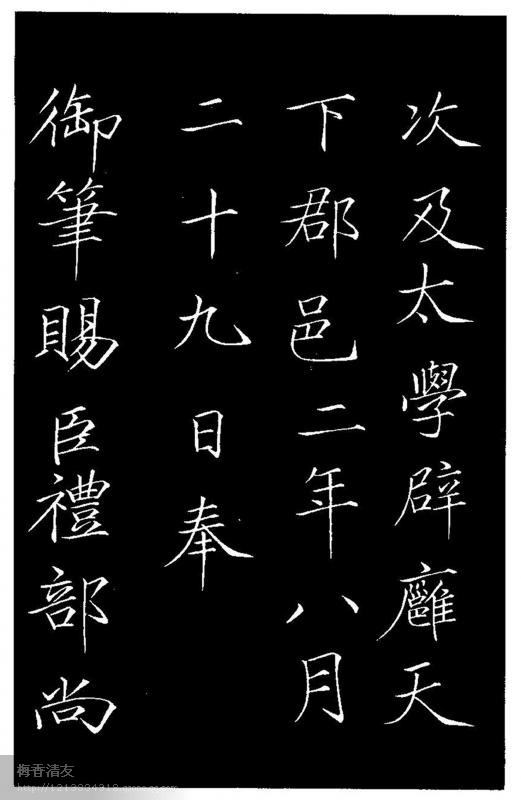 次及太學辟廱天
下郡邑二年八月
二十九日奉
御筆賜臣禮部尚
梅香清友